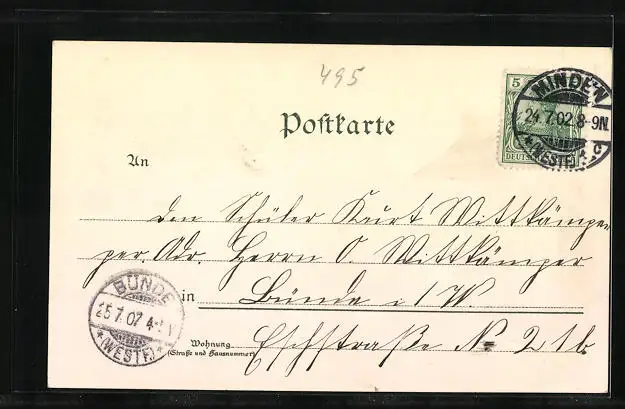 495
5
MINDEN
24.7.02. 8-9N.
*(WESTF.)* c
Postkarte
An
den Schüler Kurt Wittkämper
per. Adr. Herrn O. Wittkämper
BÜNDE
25.7.02 4-
*(WESTF.)*
in Bünde i/W.
Wohnung
(Straße und Hausnummer)
Eschstraße No 21b